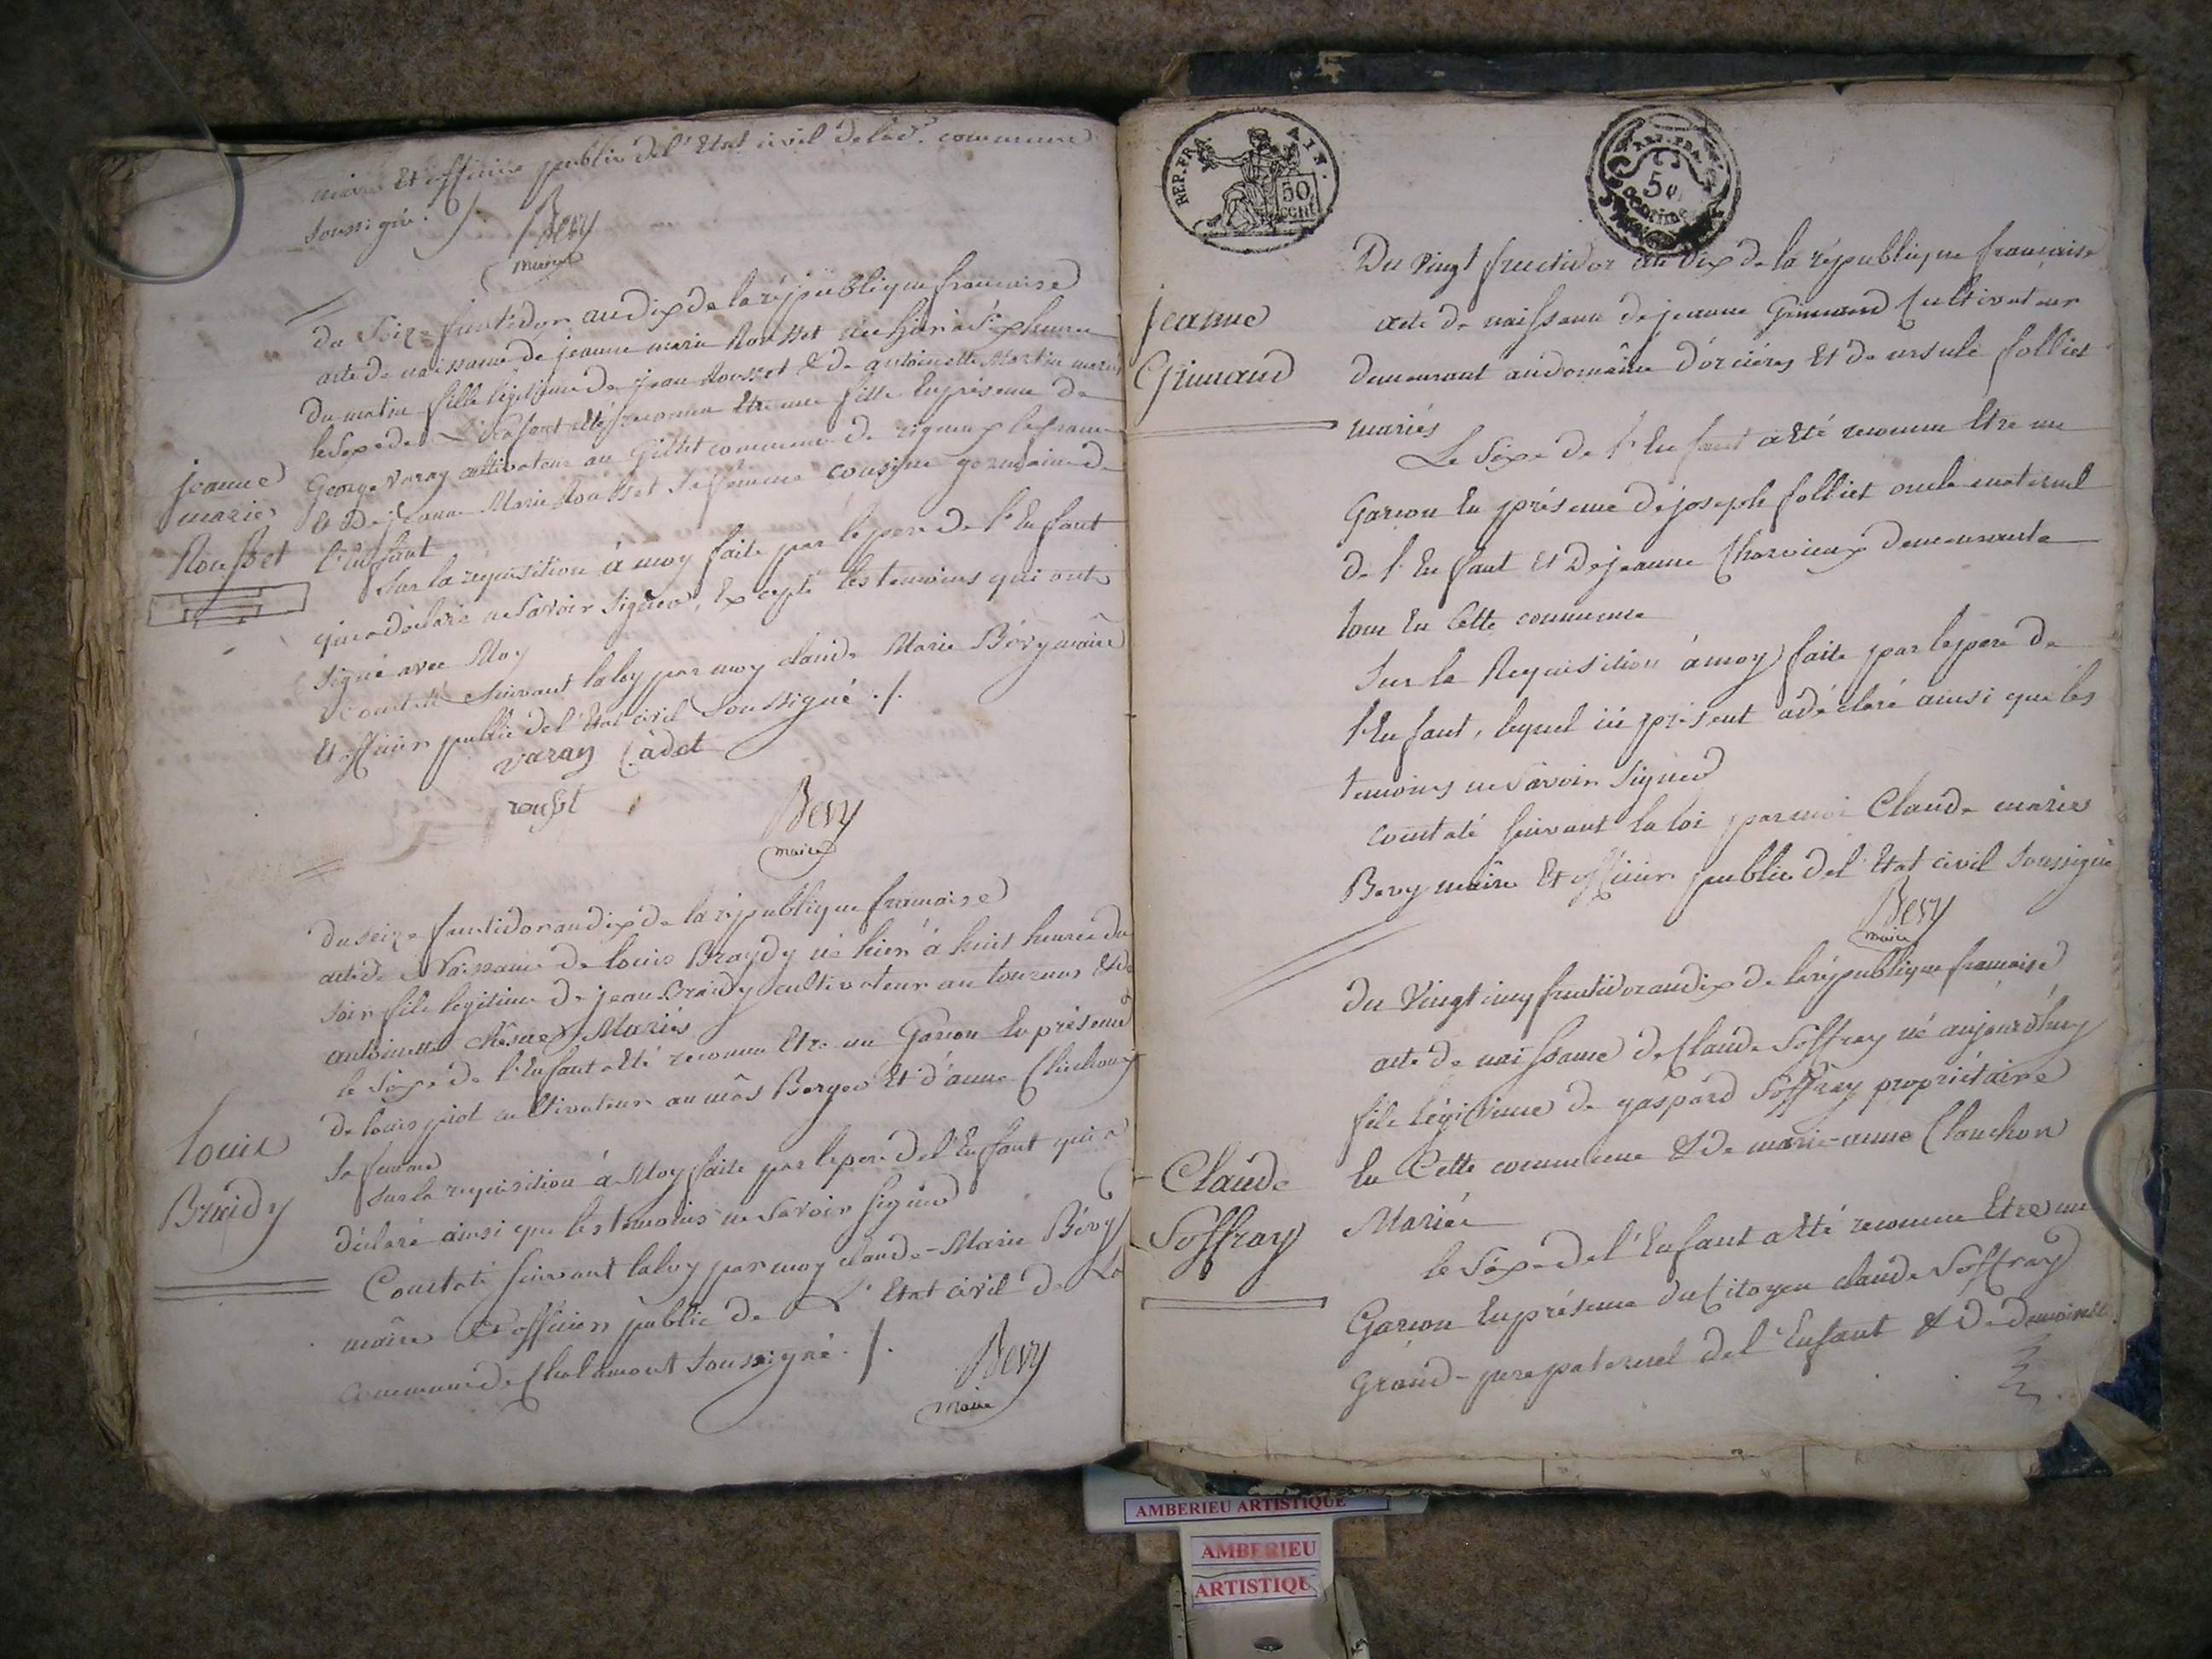 maire Et officier public del' Etat civil delad.e commune
soussigné ./.
Bevy
maire
du Seize fructidor an dix de la république francaise
acte de naissance de jeanne marie Rousset née hier à Six heures
du matin fille légitime de jean Rousset & de antoinette Martin mariés
le Sexe de L'Enfant a Eté reconnu Etre une fille En présence de
George Varay cultivateur au Gillet commune de
Et De jeanne Marie Rousset sa femme cousine germaine de
l'Enfant
jeanne
marie
Rousset
Sur la réquisition à moy faite par le pere de l'Enfant
qui a déclaré ne Savoir Signer, Excepté les temoins qui ont
Signé avec Moy
Constaté Suivant la loy par moy claude Marie Bévy maire
Et officier public del' Etat civil Soussigné ./.
varay Cadet
rousst
Bevy
maire
du seize fructidor an dix de la république francaise
acte de Naissance de louis Braydy né hier à huit heures du
soir fils légitime de jean Braidy cultivateur au tournus Et de
antoinette Mariés
le Sexe de l'Enfant a Eté reconnu Etre un Garcon En présence
de louis piot cultivateur au mâs Berger Et d'anne
Sa femme
louis
Braidy
Sur la requisition à Moy faite par le pere del'Enfant qui a
déclaré ainsi que les temoins ne Savoir Signer
Constaté Suivant la loy par moy claude-Marie Bévy
maire Et officier public de L'Etat civil de La
commune de Chalamont Soussigné ./.
Bevy
maire
REP. FRA
AIN.
50
cent
REP. FRA.
50
centimes
Du Vingt fructidor an Dix de la république francaise
acte de naissance de jeanne Grimaud Cultivateur
demeurant au domaine d'orciéres Et de ursule folliet
mariés
jeanne
Grimaud
Le Sexe de l'Enfant a Eté reconnu Etre un
Garcon En présence de joseph folliet oncle maternel
de l'Enfant Et De jeanne Charvieux demeurants
tous En Cette commune
Sur la Requisition à moy faite par le pere de
l'Enfant, lequel ici présent a déclaré ainsi que les
temoins ne Savoir Signer
Constaté Suivant la loi par moi Claude marie
Bevy maire Et officier public del' Etat civil Soussigné
Bevy
maire
du Vingt cinq fructidor an dix de la république francaise
acte de naissance de Claude Soffray né aujourdhuy
fils légitime de gaspard Soffray propriétaire
En Cette commune & de marie-anne Clauchon
Mariés
Claude
Soffray
le Sexe del'Enfant a Eté reconnu Etre un
Garcon En présence du Citoyen claude Soffray
Grand-pere paternel del'Enfant & De
AMBERIEU ARTISTIQUE
AMBERIEU
ARTISTIQU